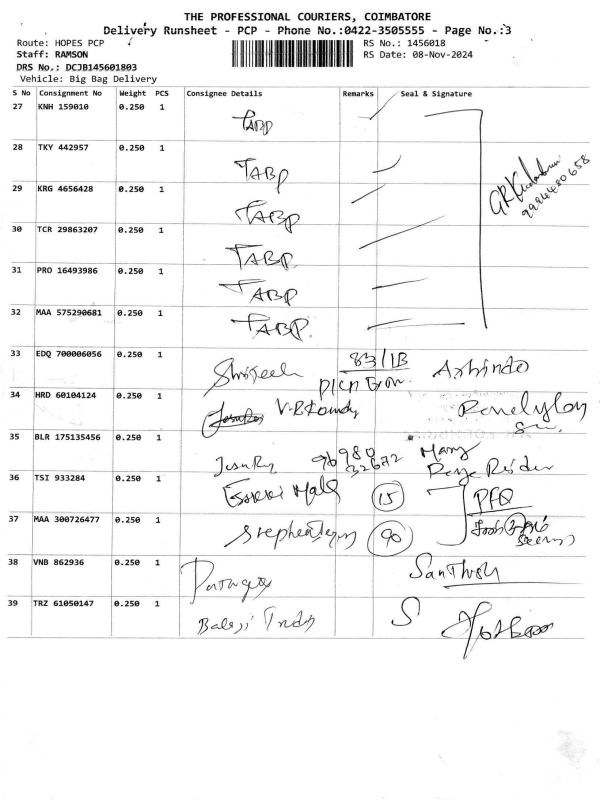 THE PROFESSIONAL COURIERS, COIMBATORE
Delivery Runsheet - PCP - Phone No.:0422-3505555 - Page No.:3
Route: HOPES PCP
RS No.: 1456018
Staff: RAMSON
RS Date: 08-Nov-2024
DRS No.: DCJB145601803
Vehicle: Big Bag Delivery
S No Consignment No Weight PCS Consignee Details Remarks Seal & Signature
27 KNH 159010 0.250 1 TABP
28 TKY 442957 0.250 1 TABP
9994480658
29 KRG 4656428 0.250 1 TABP
30 TCR 29863207 0.250 1 TABP
31 PRO 16493986 0.250 1 TABP
32 MAA 575290681 0.250 1 TABP
33 EDQ 700006056 0.250 1 83/1B
34 HRD 60104124 0.250 1
35 BLR 175135456 0.250 1 96980
32672 Mary
36 TSI 933284 0.250 1 15
37 MAA 300726477 0.250 1 90
38 VNB 862936 0.250 1 Santhosh
39 TRZ 61050147 0.250 1 Balaji